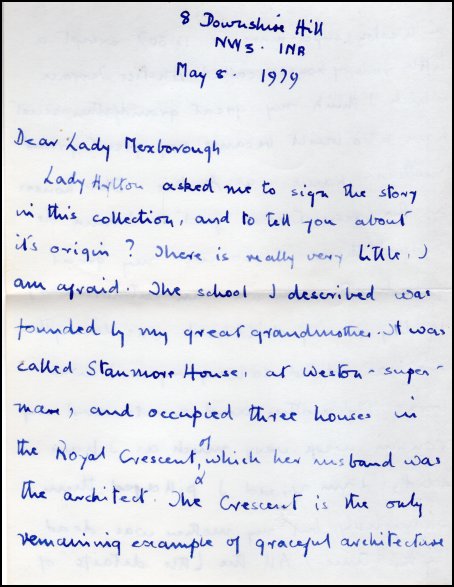 8 Downshire Hill
NW3. 1NR
May 8. 1979
Dear Lady Mexborough
Lady Hylton asked me to sign the story
in this collection, and to tell you about
it's origin? There is really very little, I
am afraid. The school I described was
founded by my great grandmother. It was
called Stanmore House, at Weston-super-
mare, and occupied three houses in
the Royal Crescent, of which her husband was
the architect. The Crescent is the only
remaining example of graceful architecture